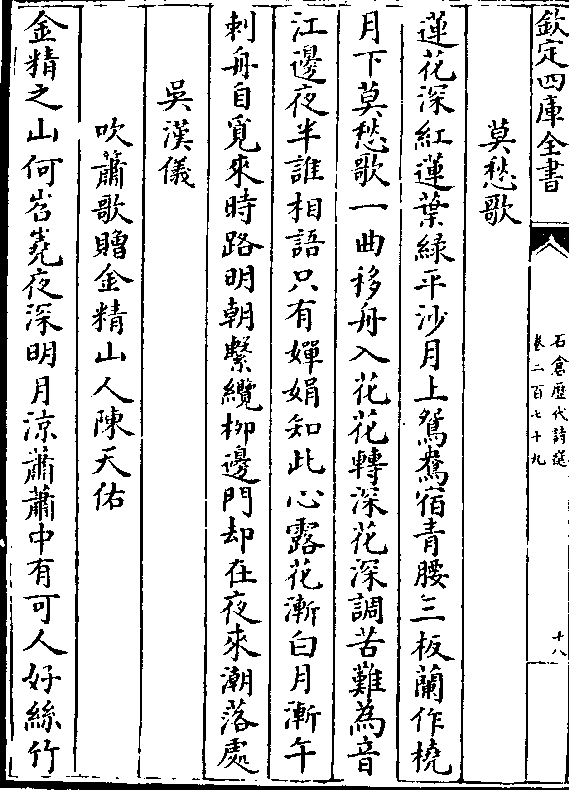 欽定四庫全書
石倉歷代詩選
卷二百七十九
十八
莫愁歌
蓮花深紅蓮葉緑平沙月上鴛鴦宿青腰三板蘭作橈
月下莫愁歌一曲移舟入花花轉深花深調苦難為音
江邊夜半誰相語只有嬋娟知此心露花漸白月漸午
刺舟自覓來時路明朝繫纜柳邊門却在夜來潮落處
吳漢儀
吹簫歌贈金精山人陳天佑
金精之山何岧嶤夜深明月凉蕭蕭中有可人好絲竹